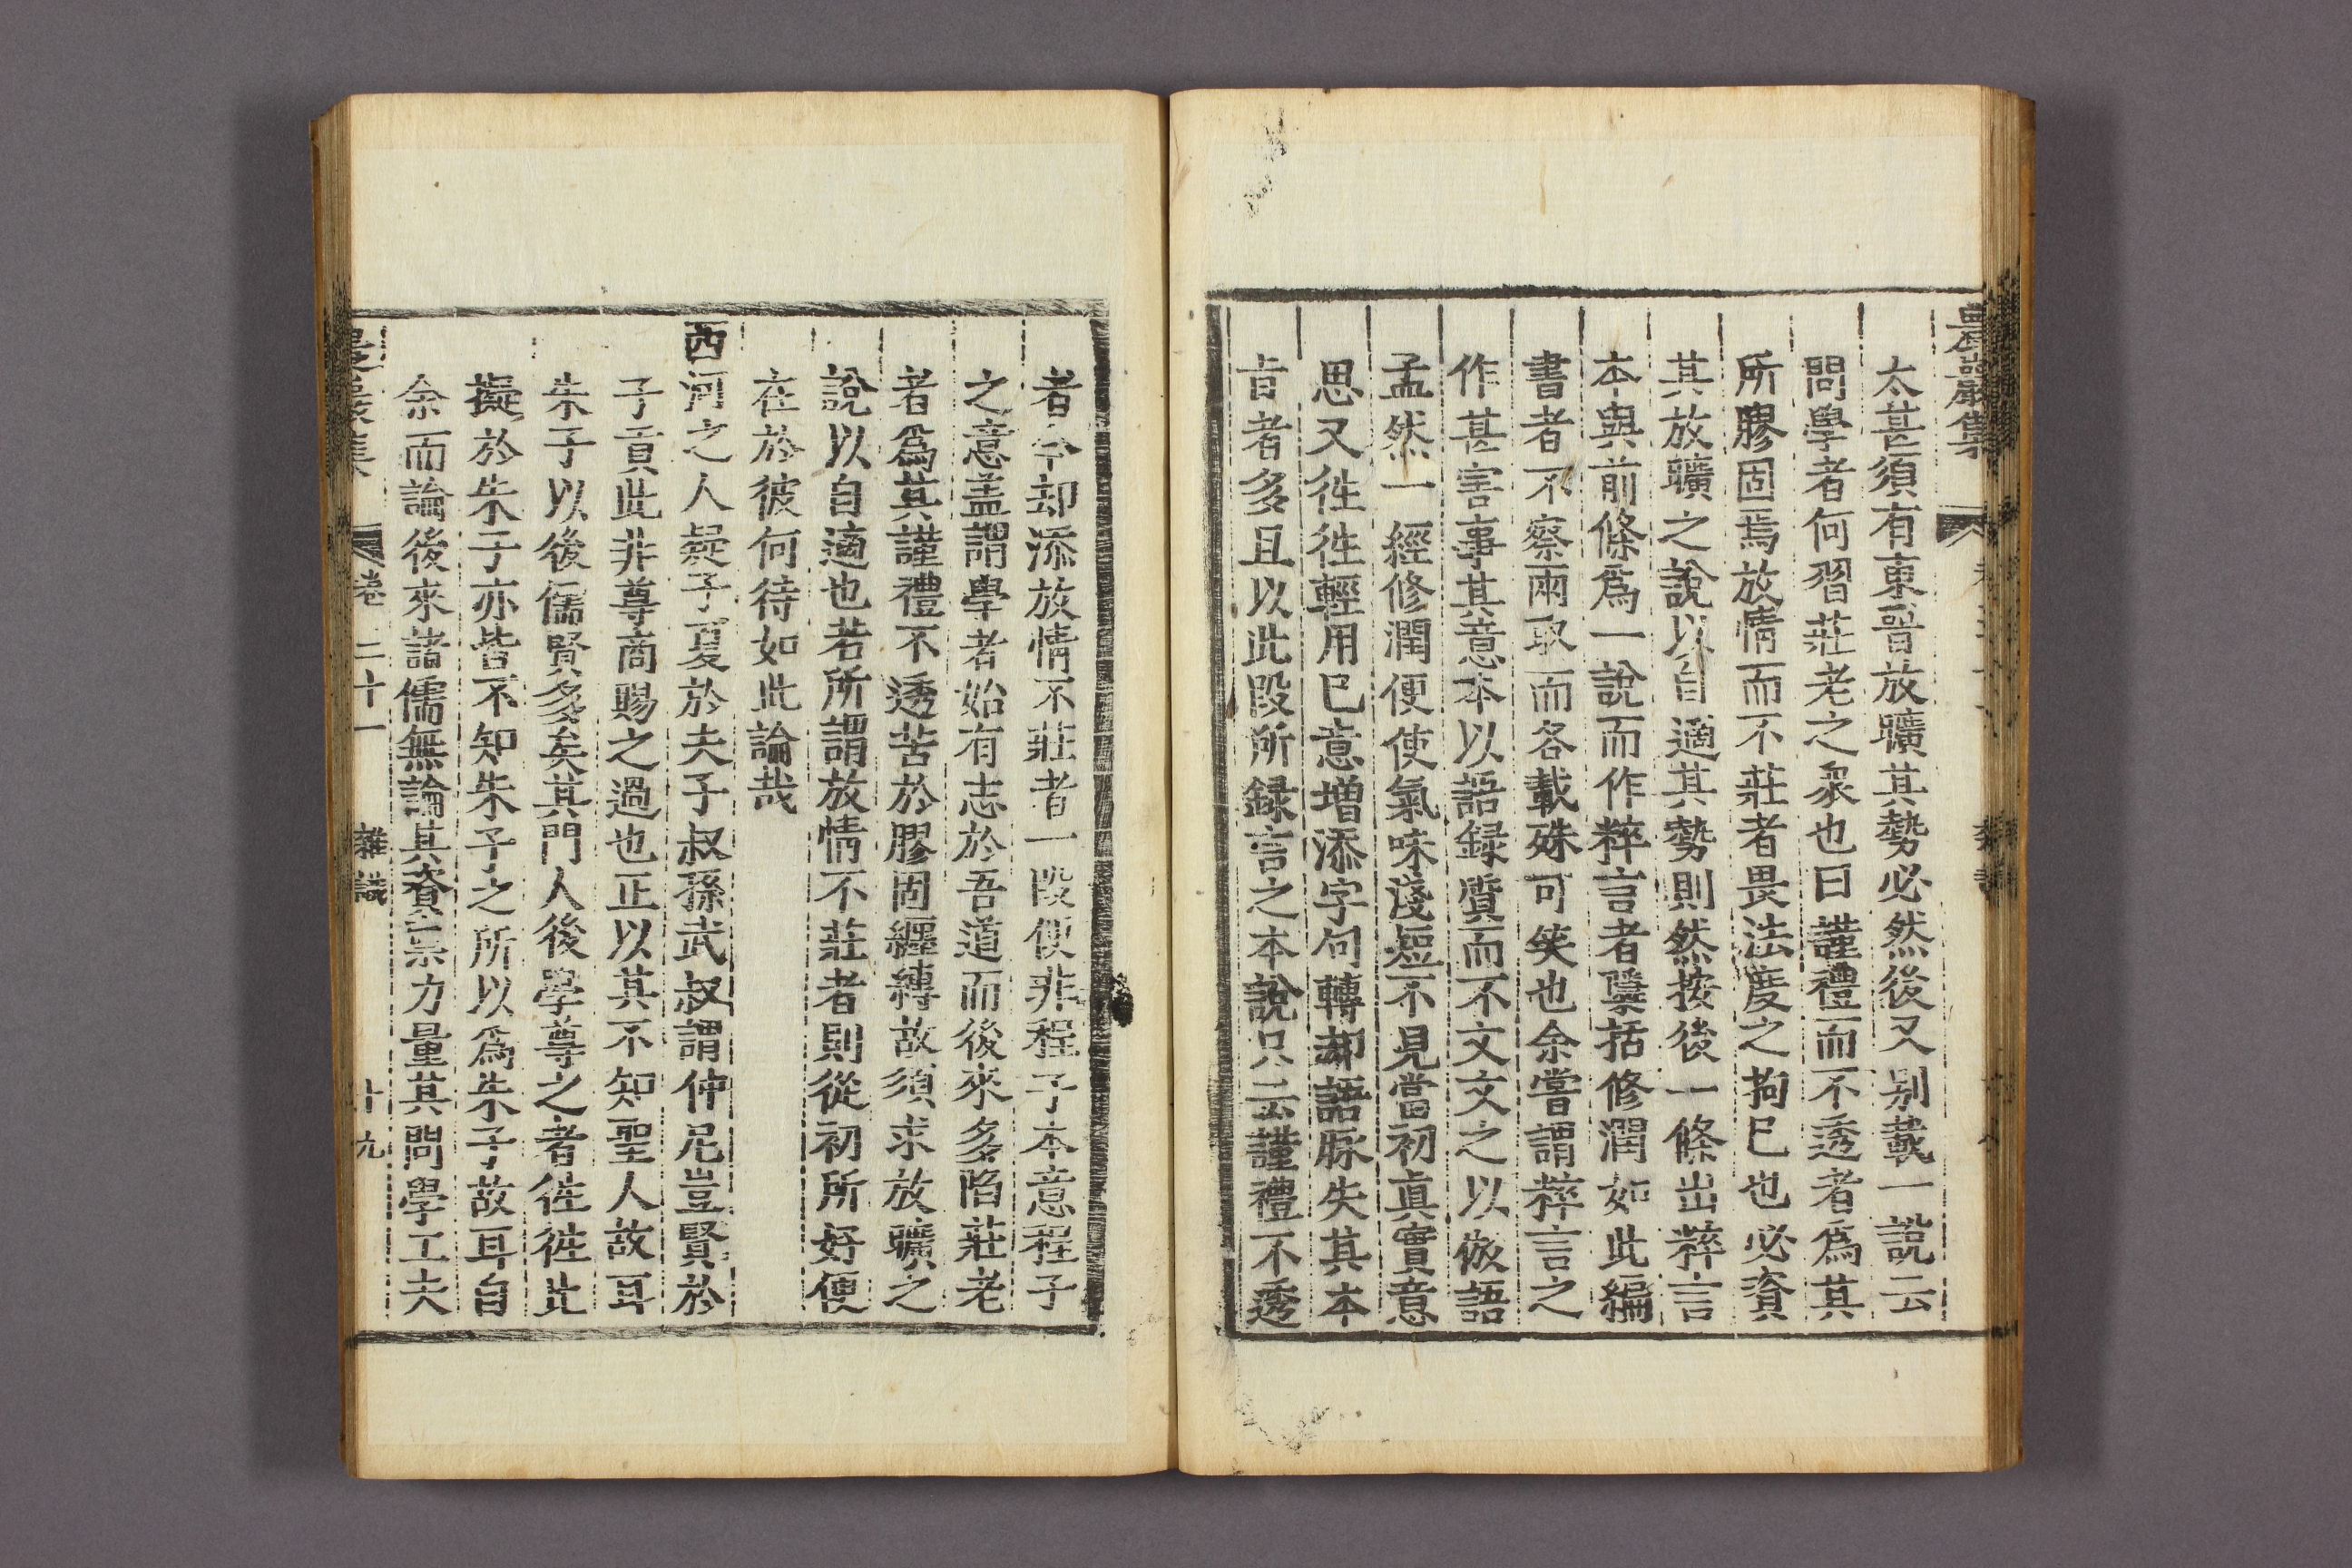 太甚須有東晉放曠其勢必然後又别載一說云
問學者何習莊老之衆也曰謹禮而不透者爲其
所膠固焉放情而不莊者畏法度之拘已也必資
其放曠之說以自適其勢則然按後一條出粹言
本與前條爲一說而作粹言者檃括修潤如此編
書者不察兩取而各載殊可笑也余嘗謂粹言之
作甚害事其意本以語録質而不文文之以倣語
孟然一經修潤便使氣味淺短不見當初眞實意
思又徃徃輕用已意增添字句轉却語脉失其本
㫖者多且以此段所録言之本說只云謹禮不透
者今却添放情不莊者一段便非程子本意程子
之意盖謂學者始有志於吾道而後來多陷莊老
者爲其謹禮不透苦於膠固纏縳故須求放曠之
說以自適也若所謂放情不莊者則從初所好便
在於彼何待如此論哉
西河之人疑子夏於夫子叔孫武叔謂仲尼豈賢於
子貢此非尊商賜之過也正以其不知聖人故耳
朱子以後儒賢多矣其門人後學尊之者徃徃此
擬於朱子亦皆不知朱子之所以爲朱子故耳自
余而論後來諸儒無論其資禀力量其問學工夫
卷二十一 雜識 十九